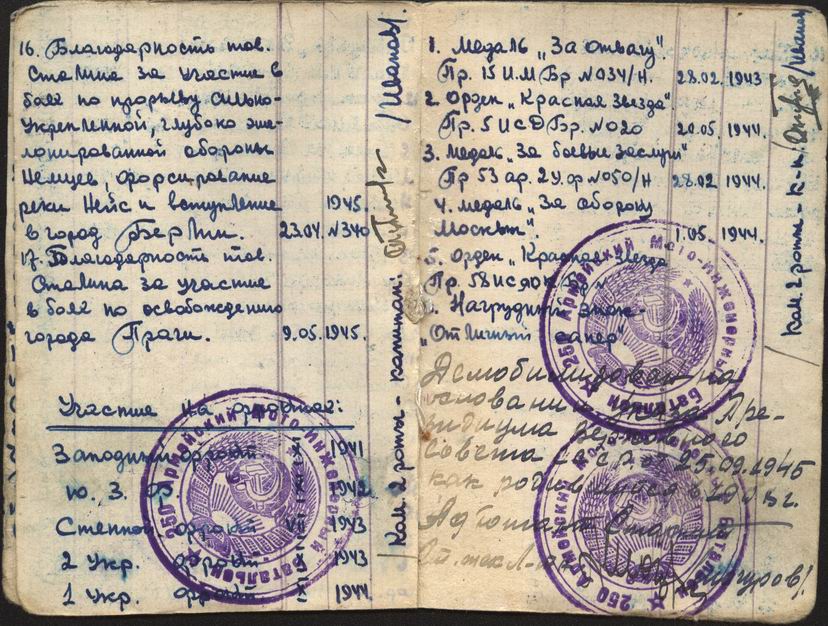 16. Благодарность тов.
Сталина за участие в
боях по прорыву сильно-
укрепленной, глубоко эше-
лонированной обороны
Немцев, форсирование
реки Нейс и вступление 1945.
в город Берлин. 23.04. №340
17. Благодарность тов.
Сталина за участие
в боях по освобождению
города Праги. 9.05.1945.
Участие на фронтах:
Западный фронт XI 1941
Ю. З. Ф 1942
Степной фронт VII 1943
2 Укр. фронт 1943
1 Укр. фронт XI 1944
Ком. 2 роты - капитан: /Иванов/.
250 Армейский Мото-Инженерный Батальон
1. Медаль „За отвагу"
Пр. 15 И.М Бр №034/Н. 28.02.1943
2. Орден „Красная Звезда"
Пр. 5 ИСДБр. №020 20.05.1944.
3. Медаль „За боевые заслуги"
Пр 53 ар. 2У.ф №050/Н 28.02 1944.
4. Медаль „За оборону
Москвы". 1.05.1944.
5. Орден „Красная Звезда
Пр. 58
6. Нагрудный знак-
„Отличный сапер"
Демобилизован на
основании Указа Пре-
зидиума Верховного
Совета СССР от 25.09.1945
как
Ст. тех. Л-т
250 Армейский Мото-Инженерный Батальон
250 Армейский Мото-Инженерный Батальон
Ком. 2 роты - к-н: /Иванов